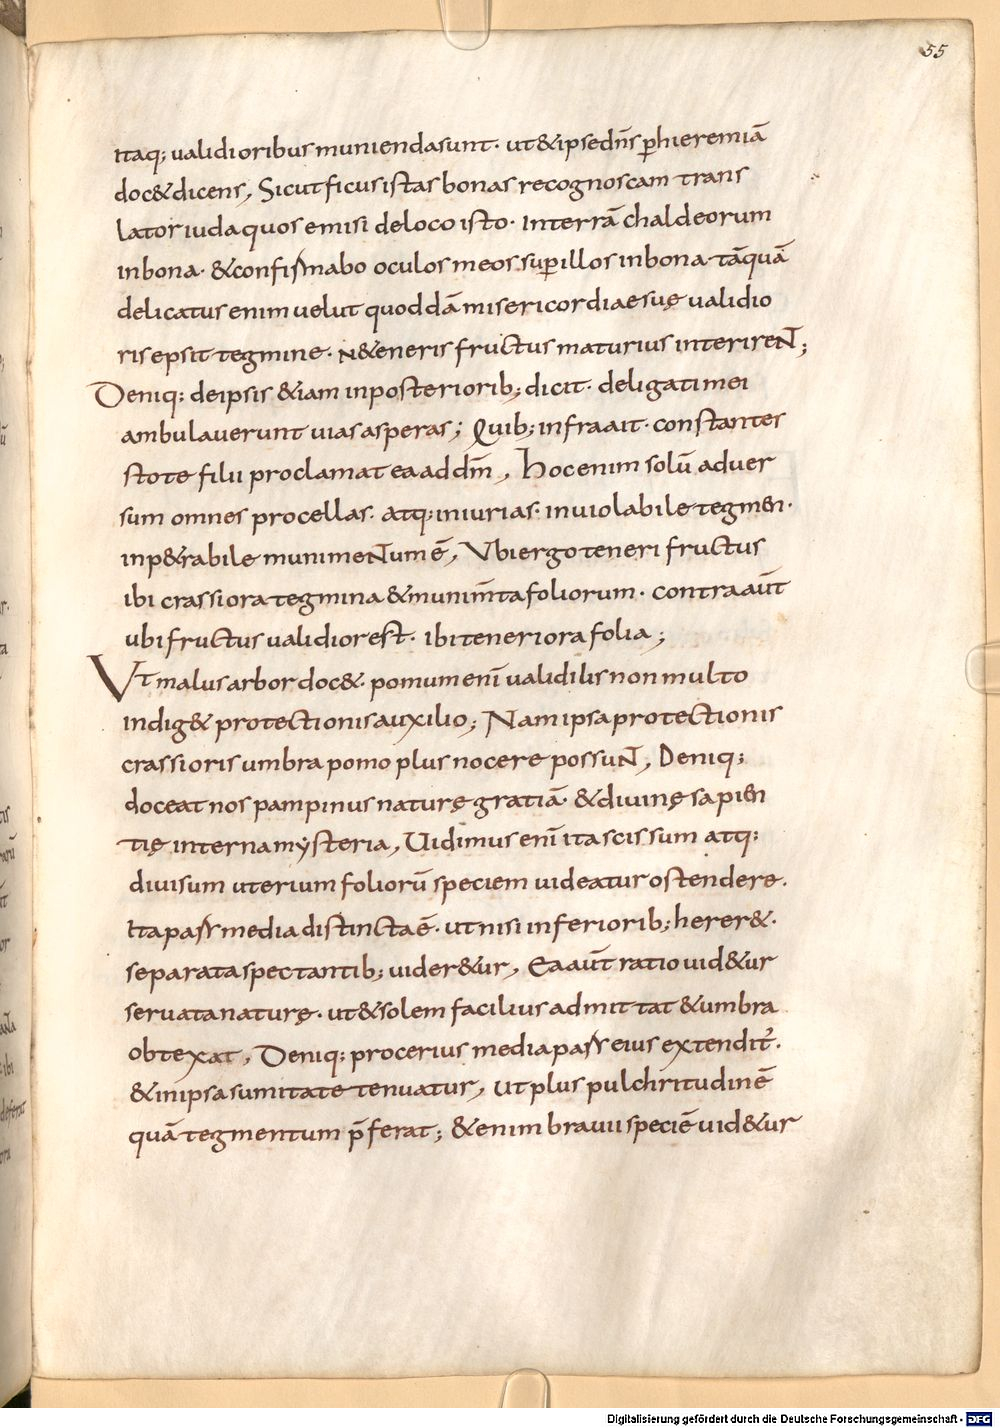 55
Itaq; validioribus munienda sunt. ut & ipse dn̄s p̱ hieremiā
doc& dicens, Sicut ficus istas bonas recognoscam trans
lator iuda quos emisi de loco isto. In terrā chaldeorum
in bona. & confirmabo oculos meos sup̱ illos in bona. tāquā
delicatus enim uelut quoddā misericordiae suę ualidio
ris epsit tegmine. n& eneris fructus maturius interirent;
Deniq; de ipsis &iam in posteriorib; dicit. deligati mei
ambulauerunt uias asperas; Quib; infra ait. constantes
stote filii proclamat ea ad dm̄, Hoc enim solū aduer
sum omnes procellas. atq; iniurias. inuiolabile tegmen.
inp&rabile munimentum ē, Vbi ergo teneri fructus
ibi crassiora tegmina & munim̄ta foliorum. contra aut̄
ubi fructus ualidior est. ibi teneriora folia;
Vt malus arbor doc&. pomum enī ualidilis non multo
indig& protectionis auxilio; Nam ipsa protectionis
crassioris umbra pomo plus nocere possunt, Deniq;
doceat nos pampinus naturę gratiā. & diuinę sapien
tię interna mysteria, Uidimus enī ita scissum atq;
diuisum ut erium foliorū speciem uideatur ostendere.
Ita pars media distincta ē. ut nisi inferiorib; herer&.
separata spectantib; uider&ur, Ea aut̄ ratio uid&ur
seruata naturę. ut & solem facilius admittat & umbra
obtexat, Deniq; procerius media pars eius extendit̄.
& in ipsa sumitate tenuatur, ut plus pulchritudinē
quā tegmentum p̄ferat; &enim brauii speciē uid&ur
Digitalisierung gefördert durch die Deutsche Forschungsgemeinschaft - DFG